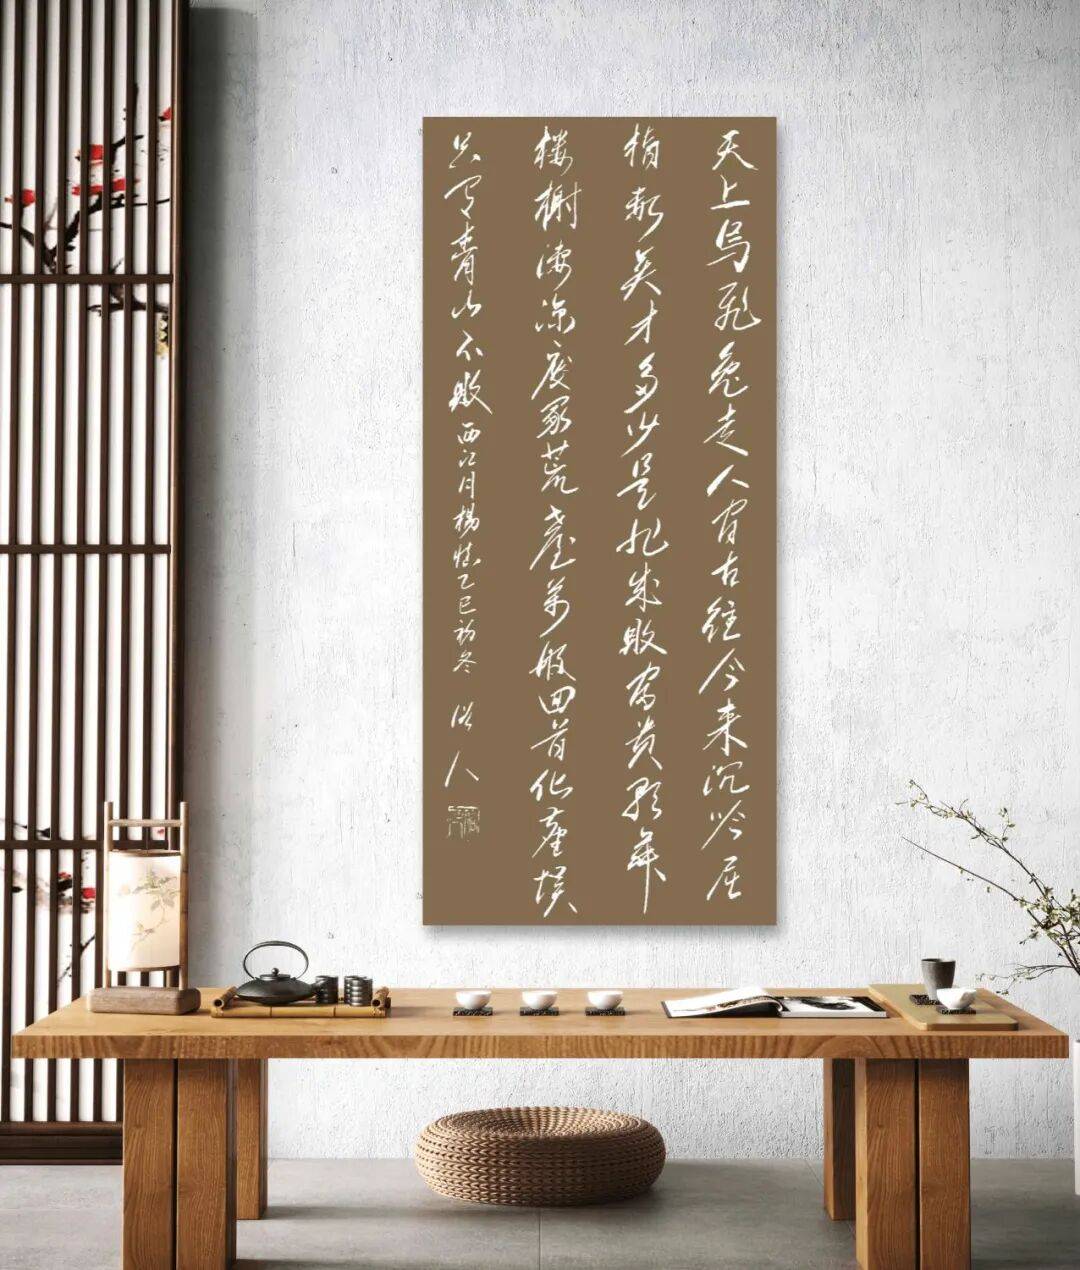 天上乌飞兔走人间古往今来沉吟屈
指数英才多少是非成败富贵歌舞
楼榭凄凉废冢荒台万般回首化尘埃
只有青山不败 西江月杨慎乙巳初冬 人